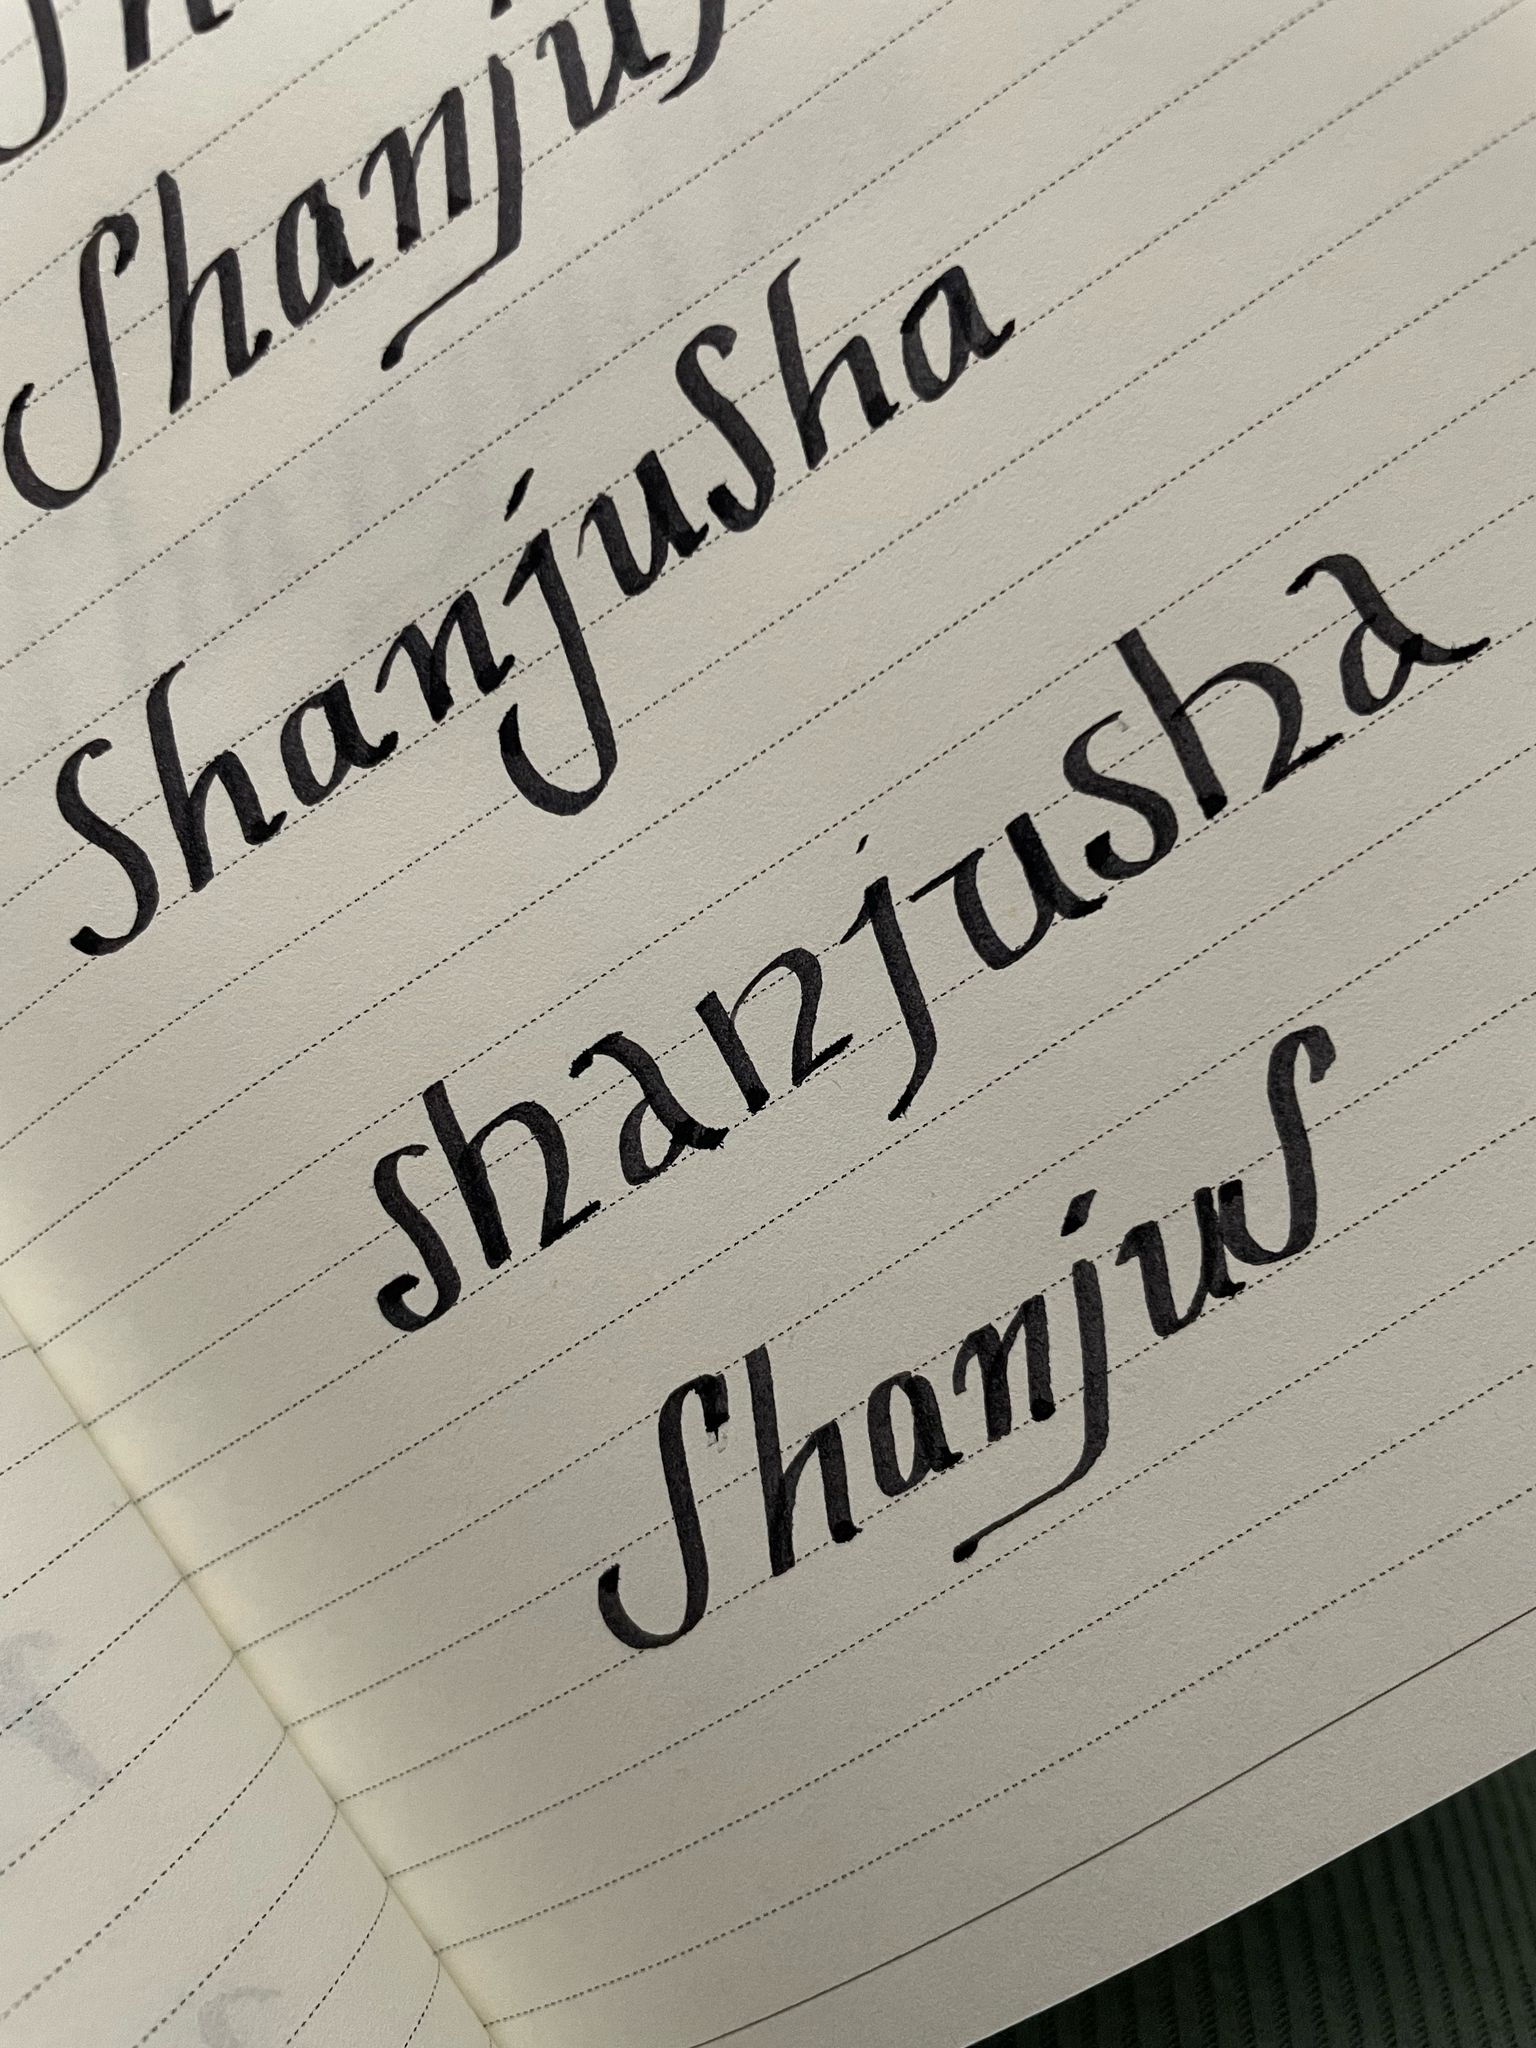 Shanjus
Shanjusha
shanjusha
Shanjus